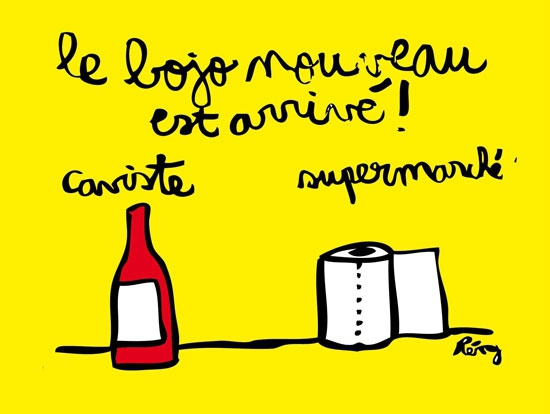 le bojo nouveau
est arrivé!
caviste
supermarché
Rémy